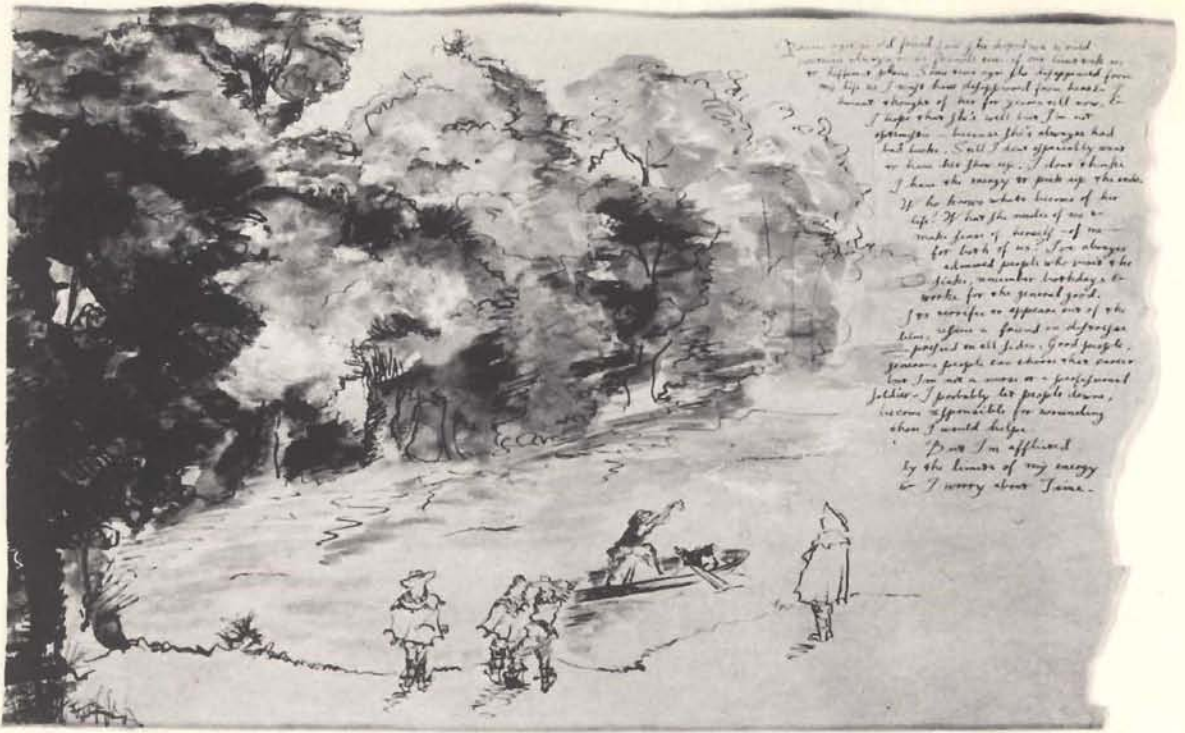 years ago an old friend
of our lives took us
to different places. Some time ago she disappeared from
my life as I might have disappeared from hers. I
havent thought of her for years till now, &
I hope that she's well but I'm not
optimistic – because she's always had
bad lucke. Still I dont especially want
to have her show up. I dont thinke
I have the energy to pick up the ends.
life! What she makes of me to
make sense of herself – of me –
for both of us. I've always
admired people who visit the
sicke, remember birthdays &
worke for the general good.
Its terrific to appear out of the
blue, rescue a friend in distresse
pressed on all sides. Good people,
generous people can choose that career
but I'm not a nurse or a professional
soldier – I probably let people downe,
become responsible for wounding
when I would helpe.
But I'm afflicted
by the limits of my energy
& I worry about Time.